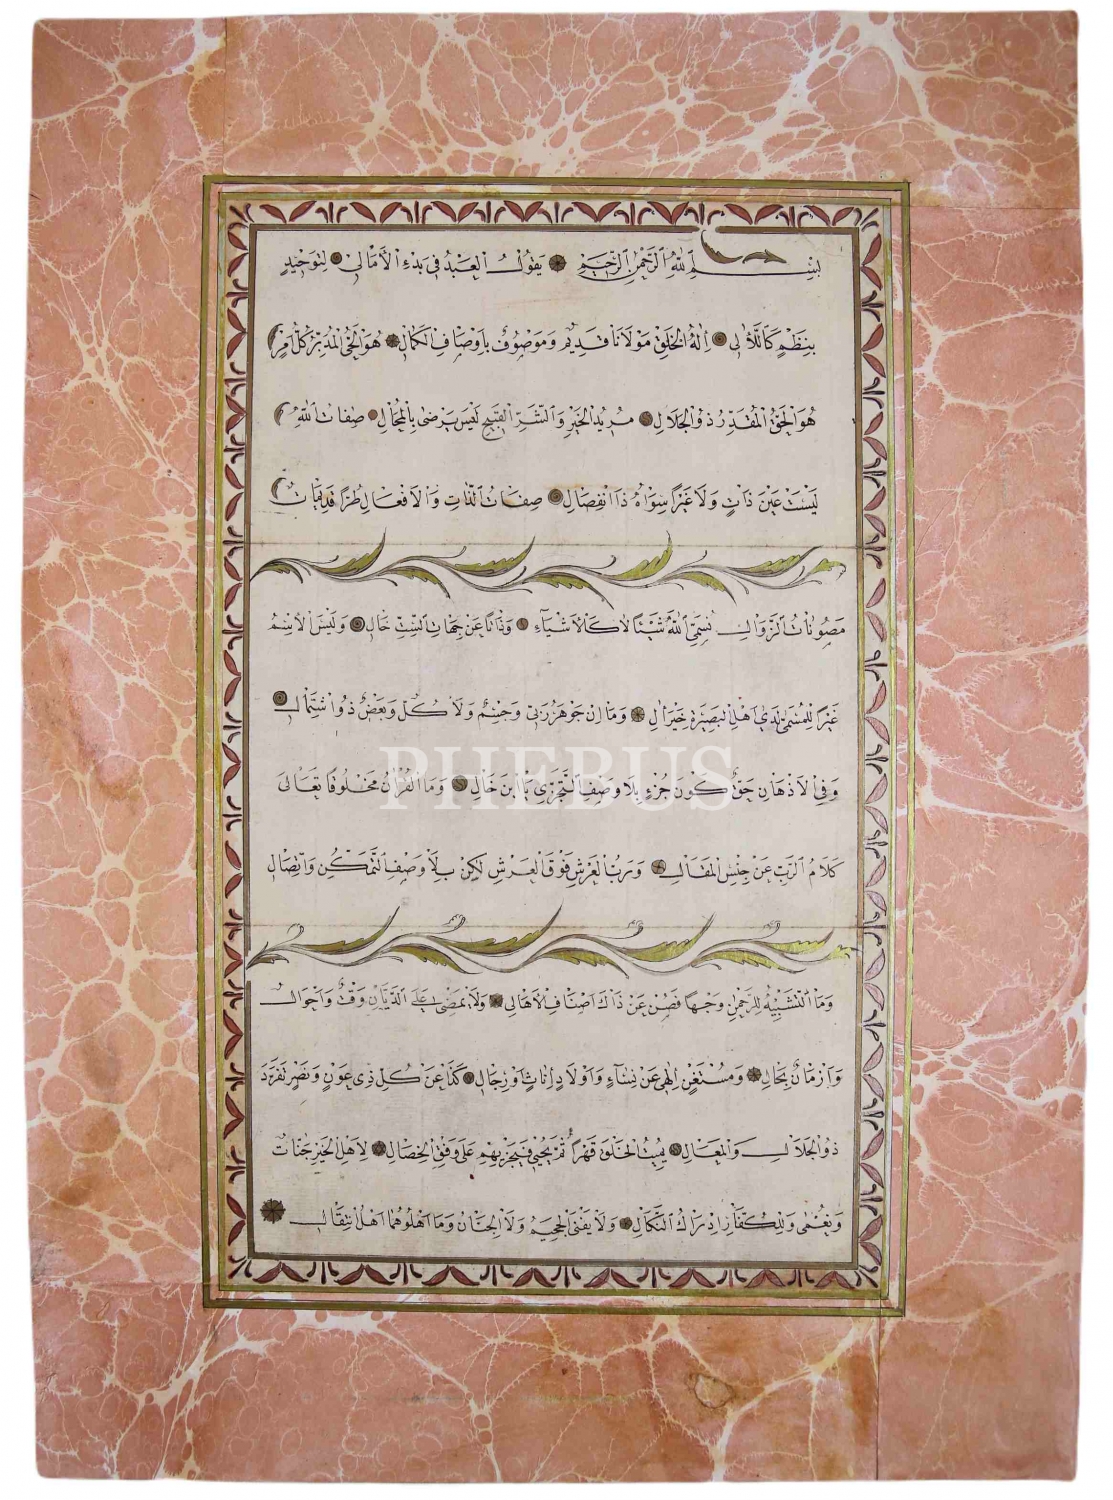 بِسْمِ اللّٰهِ الرَّحْمٰنِ الرَّحِيمِ يَقُولُ الْعَبْدُ فِي بَدْءِ الْأَمَالِي لِتَوْحِيدٍ
بِنَظْمٍ كَاللَّاٰلِي إِلٰهُ الْخَلْقِ مَوْلَانَا قَدِيمٌ وَمَوْصُوفٌ بِأَوْصَافِ الْكَمَالِ هُوَ الْحَيُّ الْمُدَبِّرُ كُلَّ أَمْرٍ
هُوَ الْحَقُّ الْمُقَدِّرُ ذُو الْجَلَالِ مُرِيدُ الْخَيْرِ وَالشَّرِّ الْقَبِيحِ لَيْسَ يَرْضَى بِالْمُحَالِ صِفَاتُ اللّٰهِ
لَيْسَتْ عَيْنَ ذَاتٍ وَلَا غَيْرًا سِوَاهُ ذَا انْفِصَالِ صِفَاتُ الذَّاتِ وَالْأَفْعَالِ طُرًّا قَدِيمَاتٌ
مَصُونَاتُ الزَّوَالِ نُسَمِّي اللّٰهَ شَيْئًا لَا كَالْأَشْيَاءِ وَذَاتًا عَنْ جِهَاتِ السِّتِّ خَالِي وَلَيْسَ الْاِسْمُ
غَيْرًا لِلْمُسَمَّى لَدَى أَهْلِ الْبَصِيرَةِ خَيْرِ اٰلِ وَمَا إِنْ جَوْهَرٌ رَبِّي وَجِسْمٌ وَلَا كُلٌّ وَبَعْضٌ ذُو اشْتِمَالِ
وَفِي الْأَذْهَانِ حَقٌّ كَوْنُ جُزْءٍ بِلَا وَصْفِ التَّجَزِّي يَا ابْنَ خَالِ وَمَا الْقُرْاٰنُ مَخْلُوقًا تَعَالَى
كَلَامُ الرَّبِّ عَنْ جِنْسِ الْمَقَالِ وَرَبُّ الْعَرْشِ فَوْقَ الْعَرْشِ لٰكِنْ بِلَا وَصْفِ التَّمَكُّنِ وَاتِّصَالِ
PHEBUS
وَمَا التَّشْبِيهُ لِلرَّحْمٰنِ وَجْهًا فَصُنْ عَنْ ذَاكَ أَصْنَافَ الْأَهَالِي وَلَا يَمْضِي عَلَى الدَّيَّانِ وَقْتٌ وَأَحْوَالٌ
وَأَزْمَانٌ بِحَالِ وَمُسْتَغْنٍ إِلٰهِي عَنْ نِسَاءٍ وَأَوْلَادٍ إِنَاثٍ أَوْ رِجَالِ كَذَا عَنْ كُلِّ ذِي عَوْنٍ وَنَصْرٍ تَفَرَّدَ
ذُو الْجَلَالِ وَالْمَعَالِ يُمِيتُ الْخَلْقَ قَهْرًا ثُمَّ يُحْيِي فَيَجْزِيهِمْ عَلَى وَفْقِ الْخِصَالِ لِأَهْلِ الْخَيْرِ جَنَّاتٌ
وَنُعْمَى وَلِلْكُفَّارِ إِدْرَاكُ النَّكَالِ وَلَا يَفْنَى الْجَحِيمُ وَلَا الْجِنَانُ وَمَا أَهْلُوهُمَا أَهْلُ انْتِقَالِ